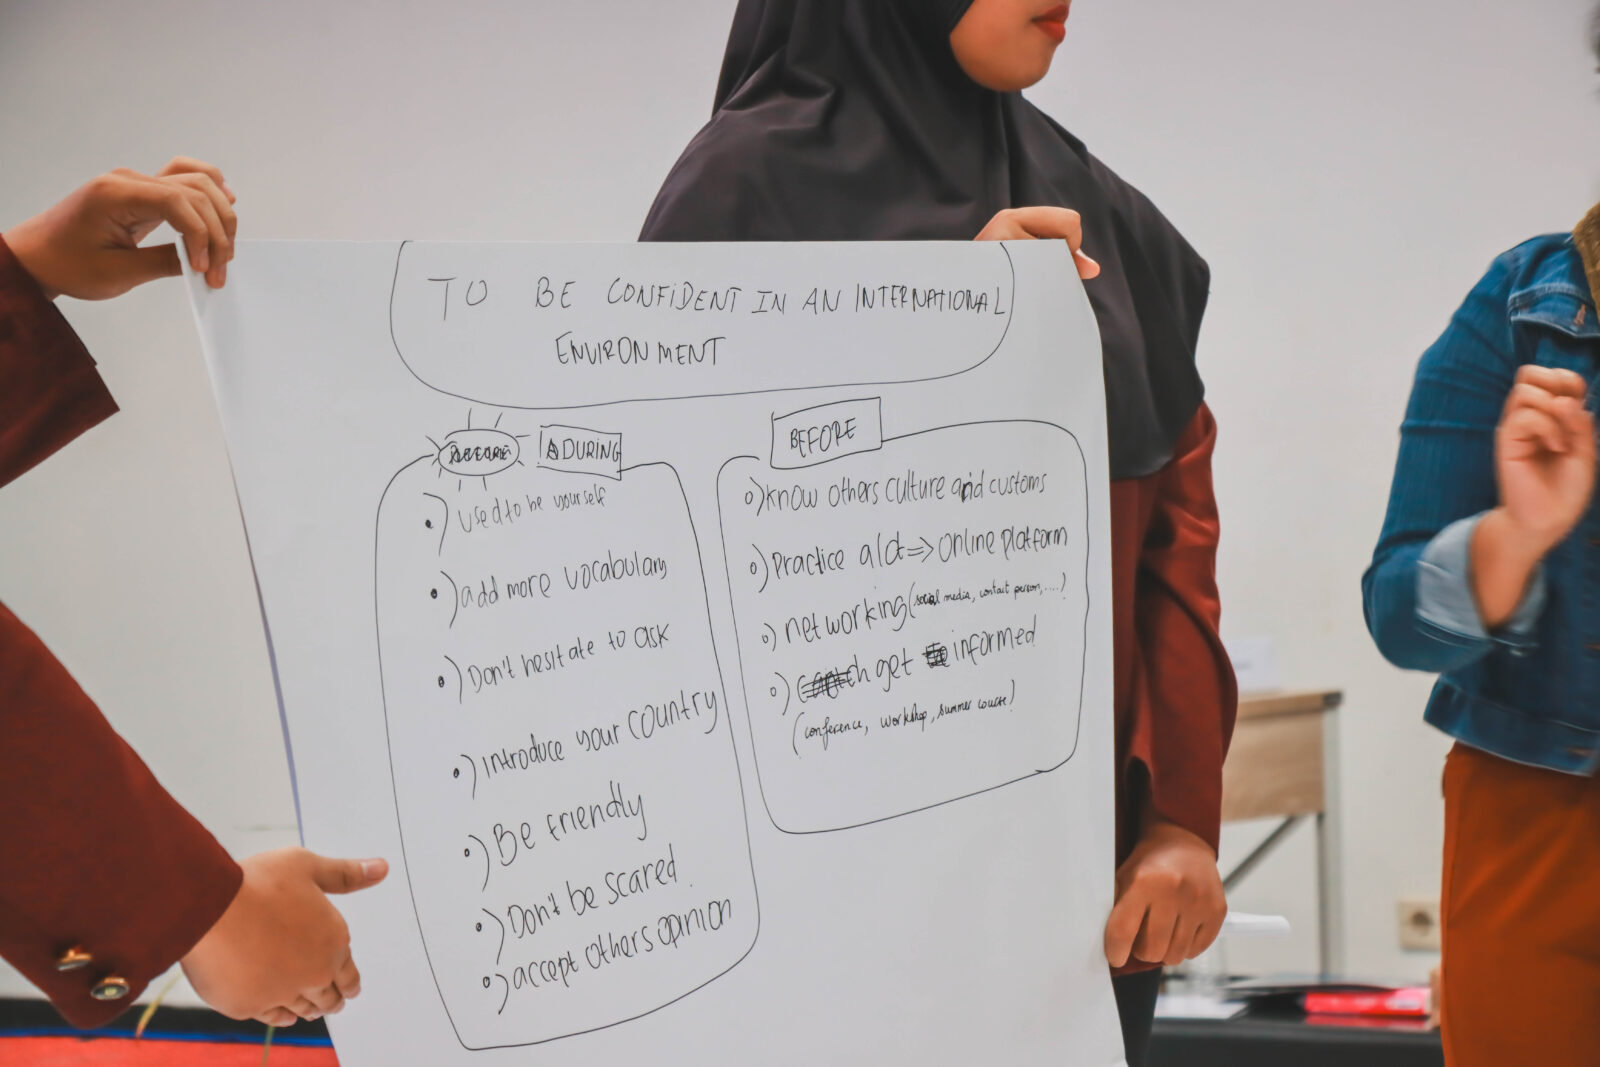 TO BE CONFIDENT IN AN INTERNATIONAL
ENVIRONMENT
DURING
•) used to be yourself
•) add more vocabulary
•) Don't hesitate to ask
•) introduce your country
•) Be friendly
•) Don't be scared.
•) accept others opinion
BEFORE
o) know others culture and customs
o) Practice a lot => Online platform
o) networking (social media, contact person, ....)
o) get informed
(conference, workshop, summer course)